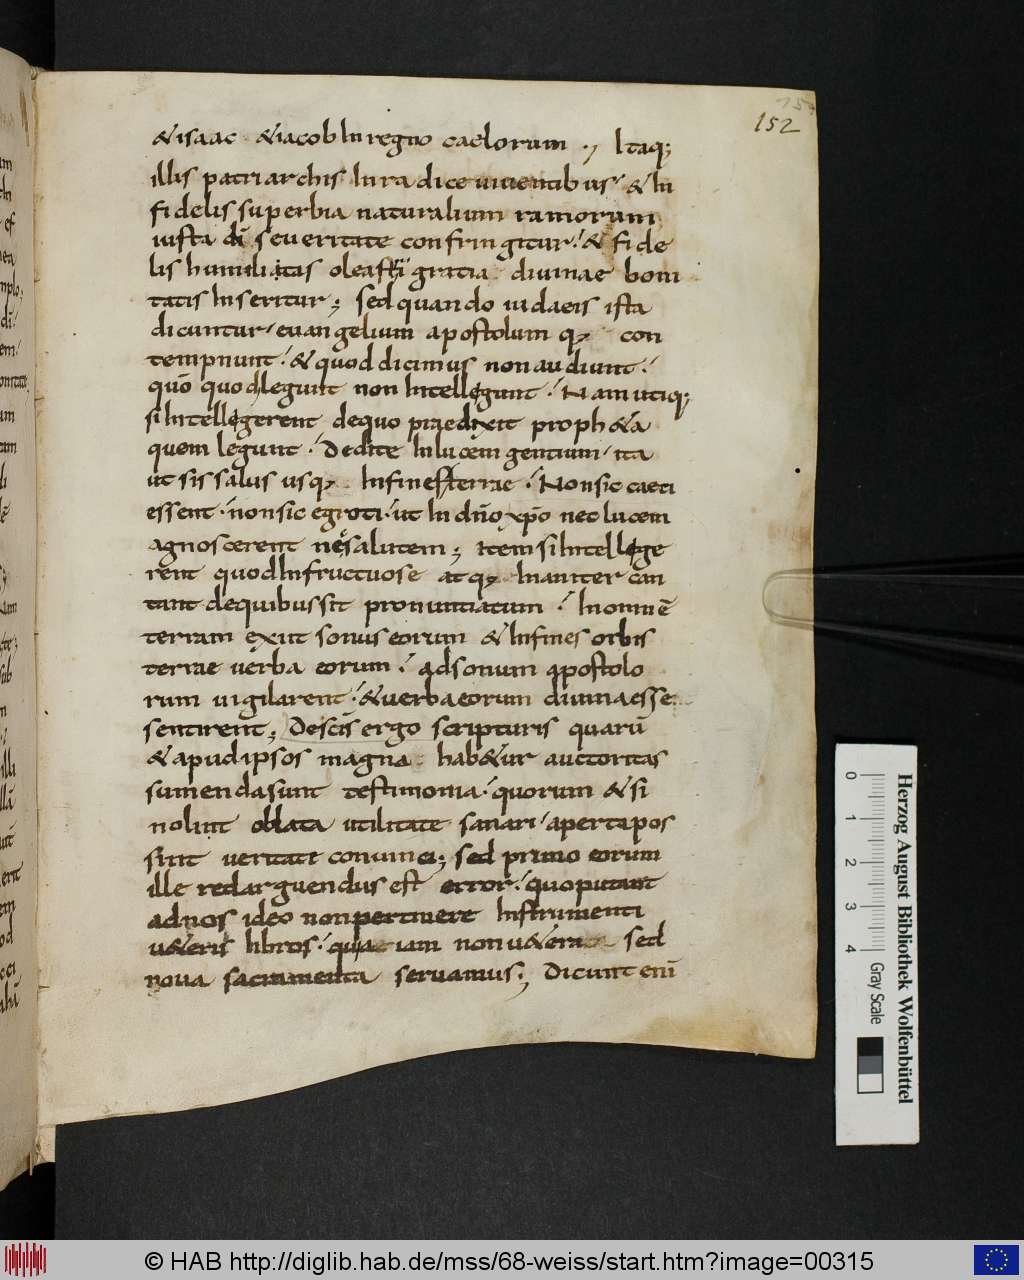 152
&isaac &iacob In regno caelorum ., Itaq;
illis patriarchis In radice uiuentibus & In
fidelis superbia naturalium ramorum
iusta dī seueritate confringitur & fide
lis humilitas oleastri gratia diuinae boni
tatis Inseritur; sed quando iudaeis ista
dicuntur euangelium apostolum q; con
tempnunt & quod dicimus non audiunt
quō quod legunt non Intellegunt Nam utiq;
si Intellegerent dequo praedixit proph&a
quem legunt Dedite Inlucem gentium ita
ut sis salus usq; Infinesterrae Non sic caeci
essent non sic egroti ut In dño xp̄o nec lucem
agnoscerent nec salutem; Item si Intellege
rent quod Infructuose atq; Inaniter can
tant dequibus sit pronuntiatum In omnē
terram exiit sonus eorum & Infines orbis
terrae uerba eorum ad sonum apostolo
rum uigilarent & uerba eorum diuina esse
sentirent; Descis ergo scripturis quarū
& apud ipsos magna hab&ur auctoritas
sumenda sunt testimonia quorum & si
nolint oblata utilitate sanari aperta pos
sint ueritate conuinci; sed primo eorum
ille redarguendus est error quo putant
ad nos ideo non pertinere Instrumenti
u&eris libros quia iam non u&era sed
noua sacramenta seruamus; Dicunt enī
Herzog August Bibliothek Wolfenbüttel
0 1 2 3 4 Gray Scale
© HAB http://diglib.hab.de/mss/68-weiss/start.htm?image=00315